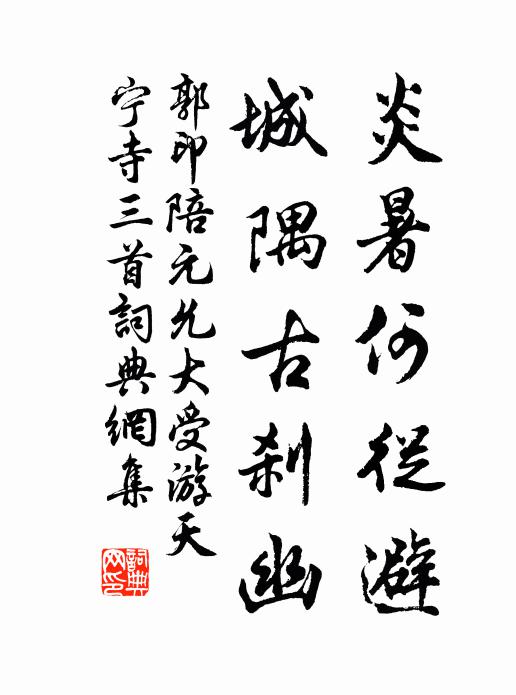 炎暑何從避
城隅古刹幽
郭印陪元允大受游天
宁寺三首詞典網集
詞典
网印